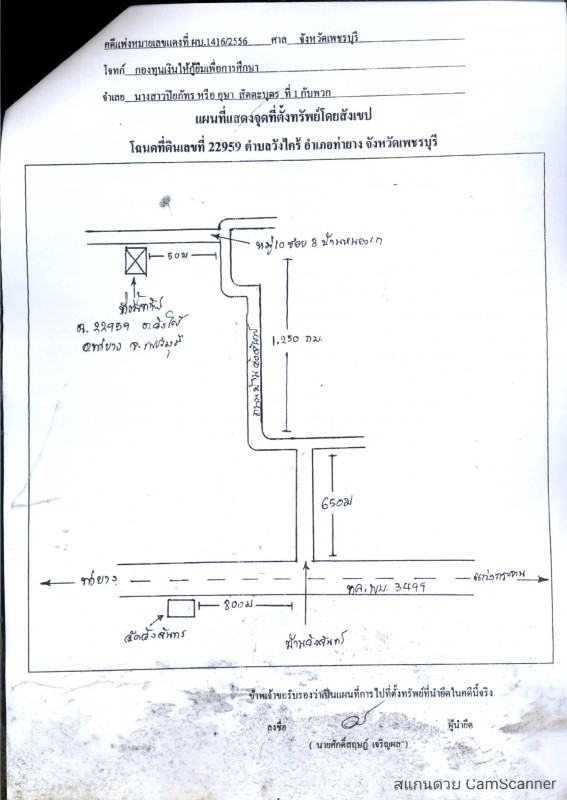 คดีแพ่งหมายเลขแดงที่ ผบ.1416/2556 ศาล จังหวัดเพชรบุรี
โจทก์ กองทุนเงินให้กู้ยืมเพื่อการศึกษา
จำเลย นางสาวปิยภัทร หรือ อุษา สัตตะบุตร ที่ 1 กับพวก
แผนที่แสดงจุดที่ตั้งทรัพย์โดยสังเขป
โฉนดที่ดินเลขที่ 22959 ตำบลวังไคร้ อำเภอท่ายาง จังหวัดเพชรบุรี
หมู่ 10 ซอย 8 บ้านหนองเ
50 ม
ที่ตั้งทรัพย์
ฉ. 22959 ต.วังไคร้
อ.ท่ายาง จ.เพชรบุรี
1.250 กม.
ถนนบ้านวังจันทร์
650 ม
ท่ายาง
ทล.พบ. 3499
แก่งกระจาน
800 ม
วัดวังจันทร์
บ้านวังจันทร์
ข้าพเจ้าขอรับรองว่าเป็นแผนที่การไปที่ตั้งทรัพย์ที่นำยึดในคดีนี้จริง
ลงชื่อ ผู้นำยึด
( นายศักดิ์สฤษฎ์ เจริญผล )
สแกนด้วย CamScanner